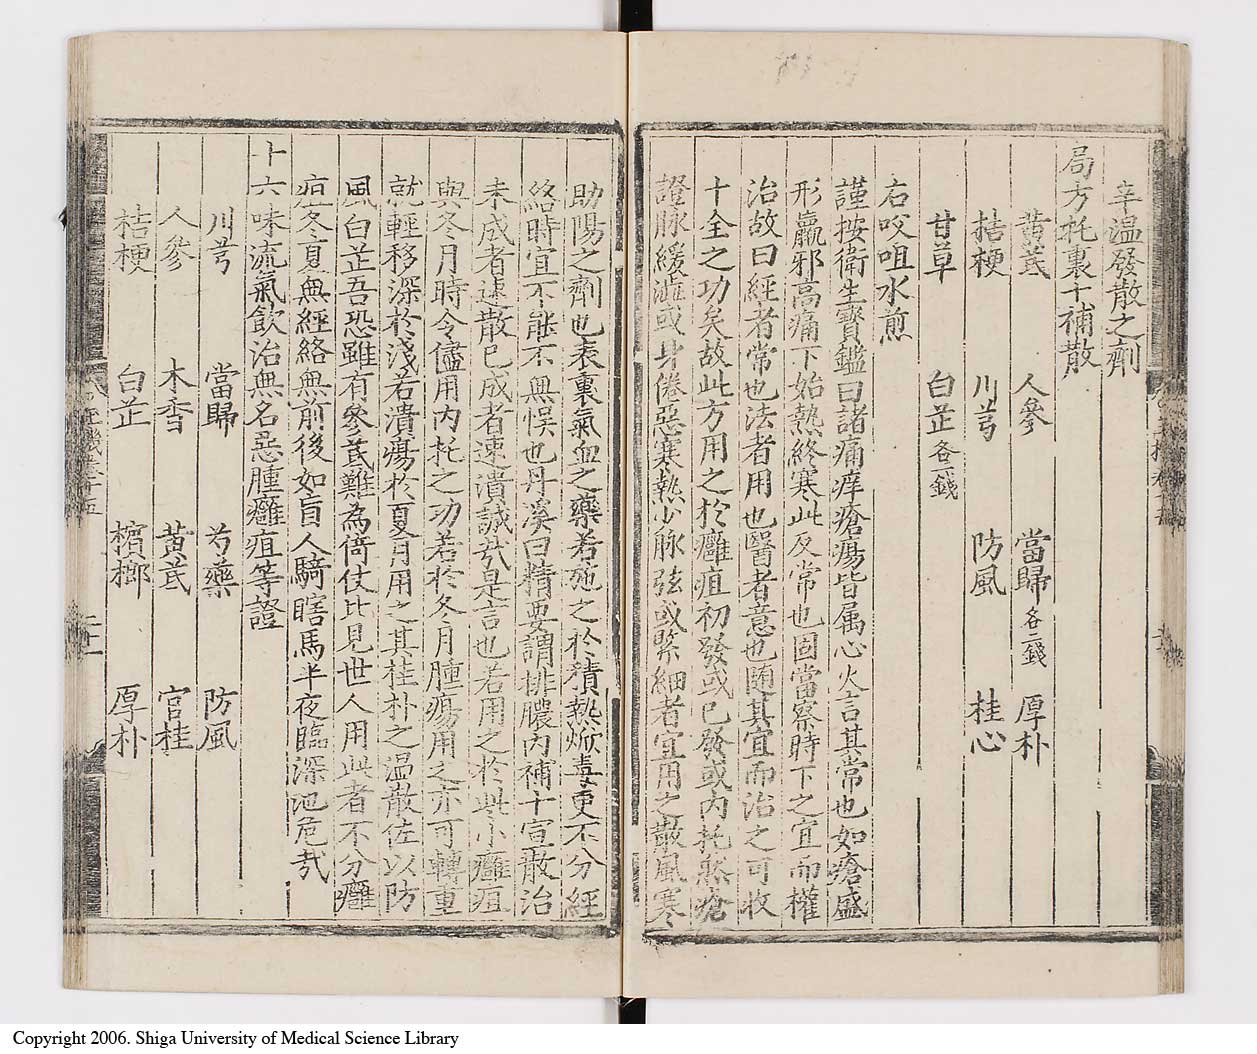 辛溫發散之劑
局方托裏十補散
黃芪 人參 當歸各二錢 厚朴
桔梗 川芎 防風 桂心
甘草 白芷各一錢
右㕮咀水煎
謹按衛生寶鑑曰諸痛痒瘡瘍皆属心火言其常也如瘡盛
形羸邪高痛下始熱終寒此反常也固當察時下之宜而權
治故曰經者常也法者用也醫者意也随其宜而治之可收
十全之功矣故此方用之於癰疽初發或已發或内托然瘡
證脉緩澁或身倦惡寒熱少脉弦或緊細者宜用之散風寒
助陽之劑也表裏氣血之藥若施之於積熱焮毒更不分經
絡時宜不能不無悞也丹溪曰精要謂排膿内補十宣散治
未成者速散已成者速潰誠哉是言也若用之於此小癰疽
與冬月時令儘用内托之功若於冬月腫瘍用之亦可轉重
就輕移深於淺若潰瘍於夏月用之其桂朴之温散佐以防
風白芷吾恐雖有參芪難為倚仗比見世人用此者不分癰
疽冬夏無經絡無前後如盲人騎瞎馬半夜臨深池危哉
十六味流氣飲治無名惡腫癰疽等證
川芎 當歸 芍藥 防風
人參 木香 黃芪 官桂
桔梗 白芷 檳榔 厚朴
Copyright 2006. Shiga University of Medical Science Library